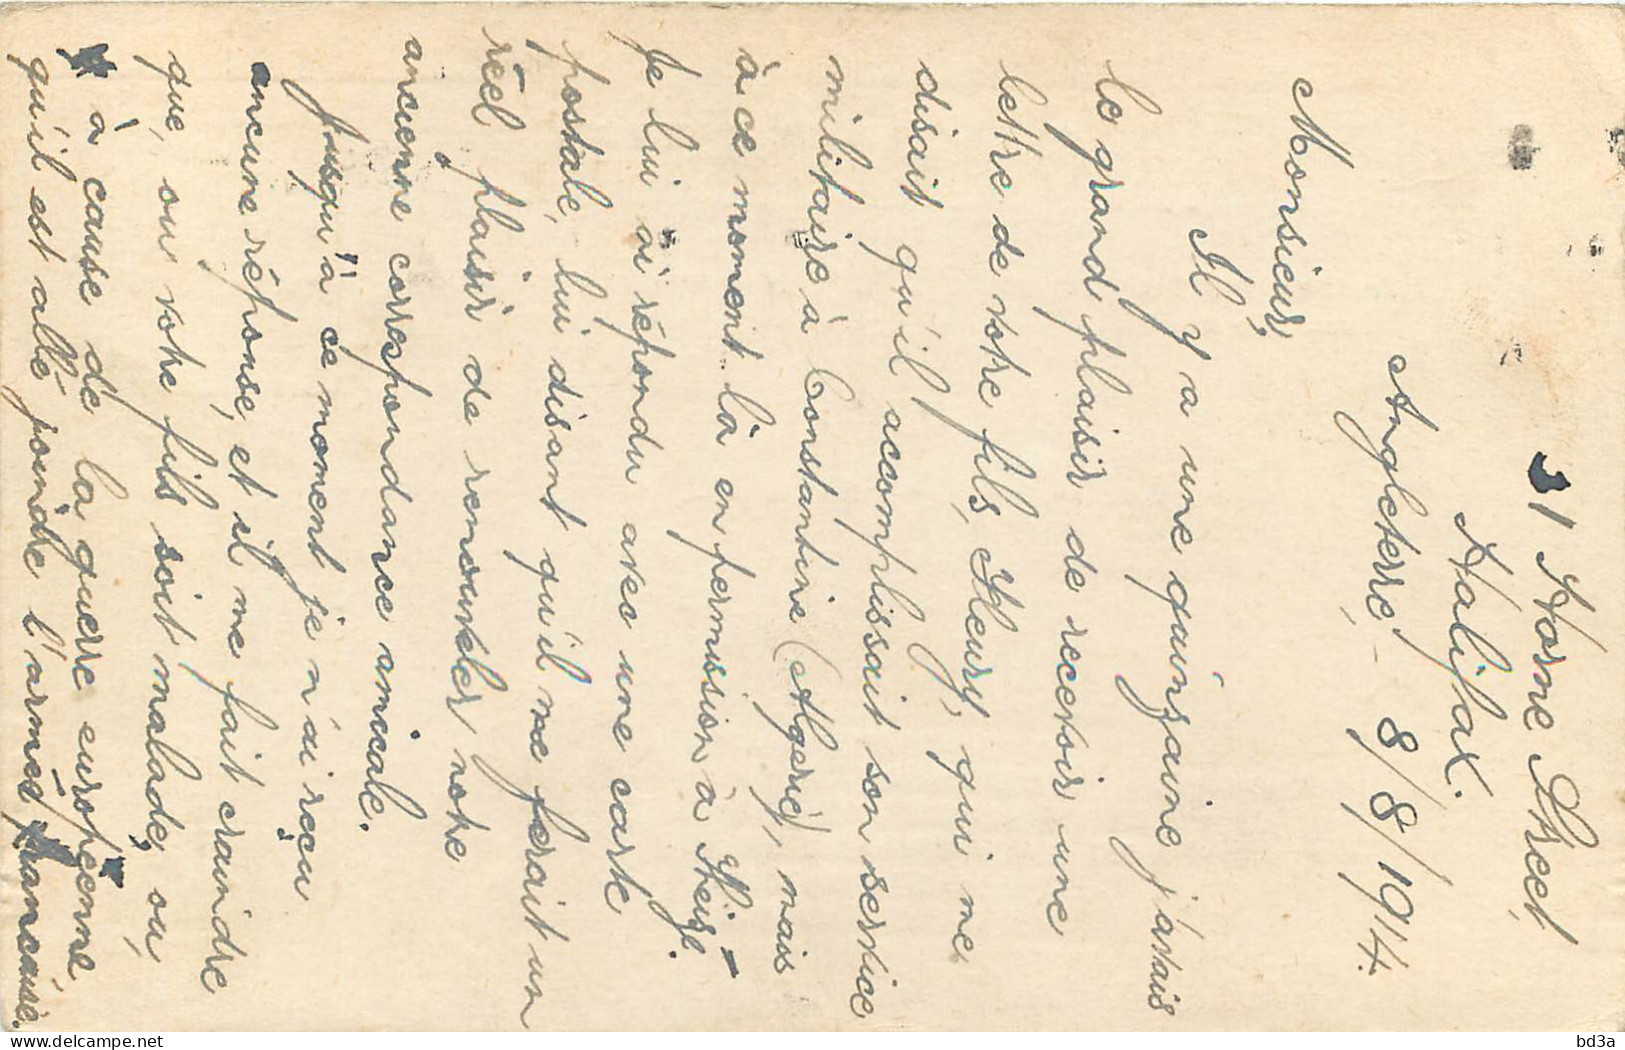 31 Horne Street,
Halifax.
Angleterre, - 8/8/1914.
Monsieur,
Il y a une quinzaine j'avais
le grand plaisir de recevoir une
lettre de votre fils, Fleury, qui me
disait qu'il accomplissait son service
militaire à Constantine (Algerie), mais
à ce moment là en permission à Thizy.
Je lui ai répondu avec une carte
postale, lui disant qu'il me ferait un
réel plaisir de renouveler notre
ancienne correspondance amicale.
Jusqu'à ce moment je n'ai reçu
aucune réponse, et il me fait craindre
que, ou votre fils soit malade, ou,
à cause de la guerre européenne,
qu'il est allé joindre l'armée française.
bd3a